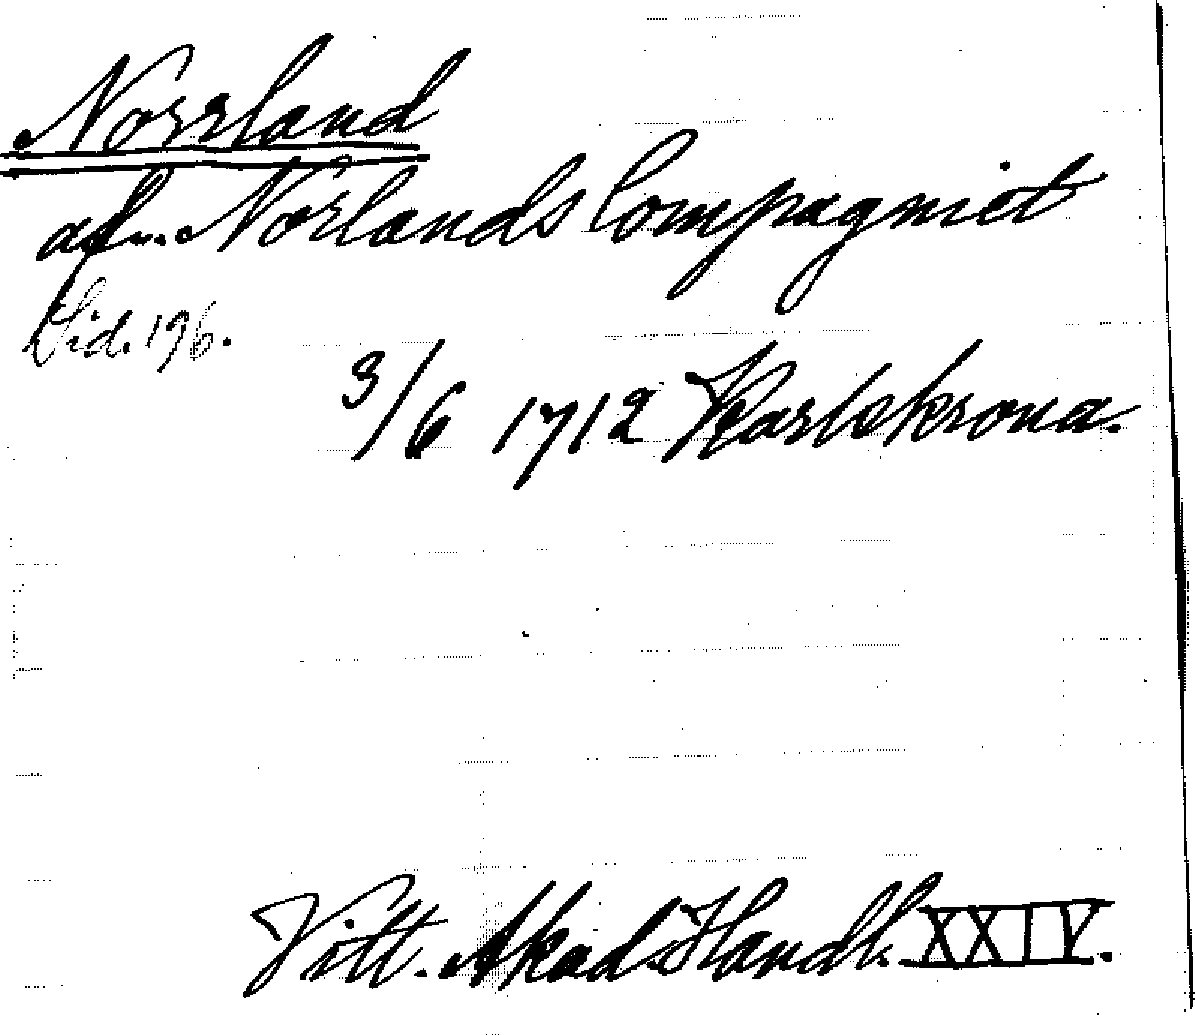 Norrland
af... Norlands Compagniet
Sid. 196.
3/6 1712 Karlskrona.
Vitt. Akad. Handl. XXIV.